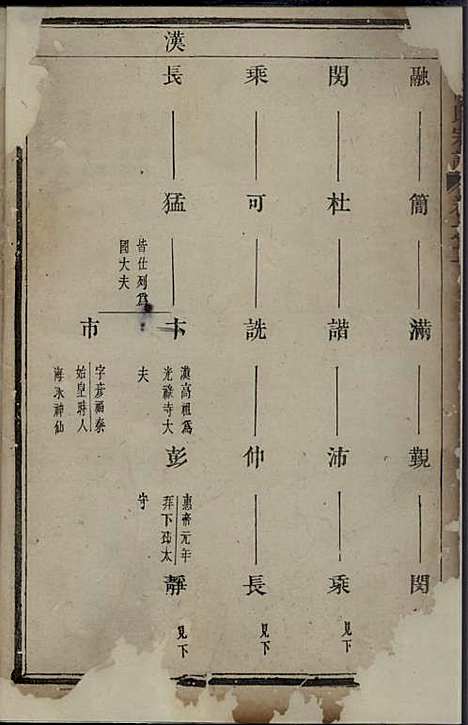 融
簡
滿
覲
閔
閔
杜
諧
沛
乘
見下
乘
可
詵
仲
長
見下
漢
長
猛
卞
彭
靜
見下
皆仕列爲
國大夫
漢高祖爲
光祿寺大
夫
惠帝元年
拜下邳太
守
市
字彥福秦
始皇時人
海求神仙